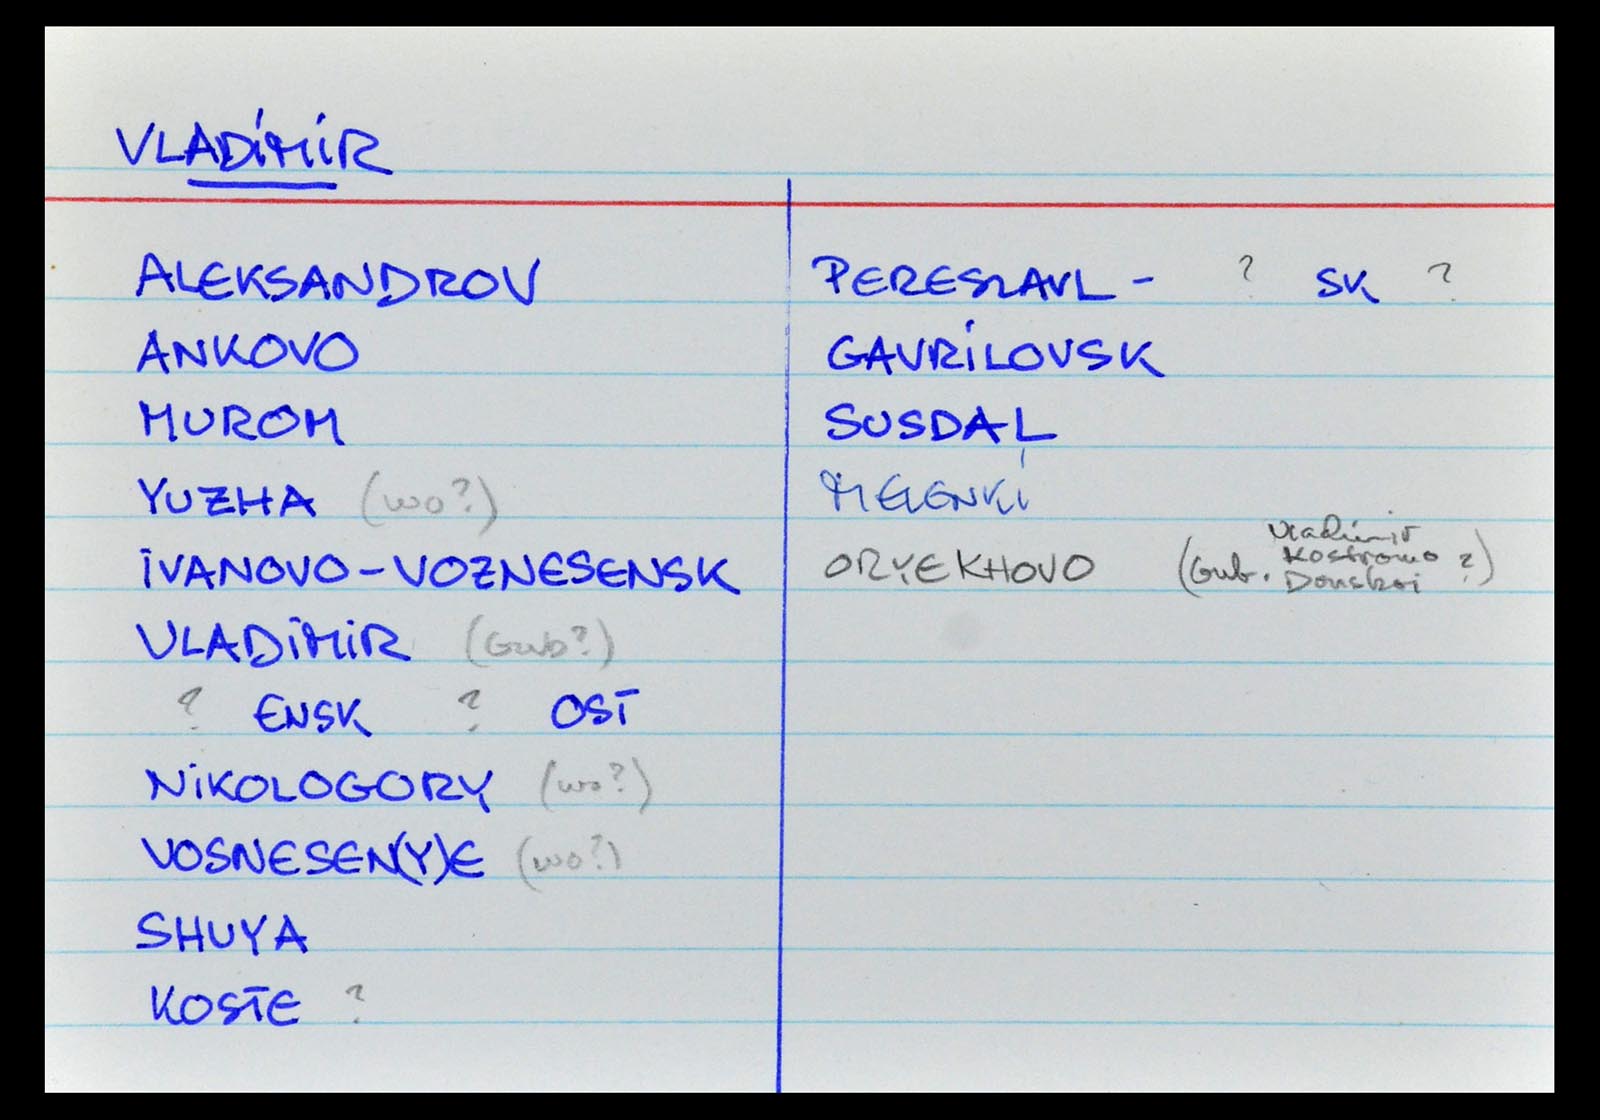 VLADIMIR
ALEKSANDROV
ANKOVO
MUROM
YUZHA (wo?)
IVANOVO-VOZNESENSK
VLADIMIR (Gub?)
? ENSK ? OST
NIKOLOGORY (wo?)
VOSNESEN(Y)E (wo?)
SHUYA
KOSTE ?
PERESLAVL- ? SK ?
GAVRILOVSK
SUSDAL
MELENKI
ORYEKHOVO (Gub. Vladimir
Kostromo ?)
Donskoi